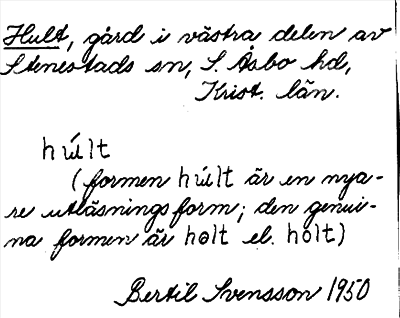 Hult, gård i västra delen av
Stenestads sn, S. Åsbo hd,
Krist. län.
húlt
(formen húlt är en nya-
re utläsningsform; den genui-
na formen är hølt el. hòlt)
Bertil Svensson 1950